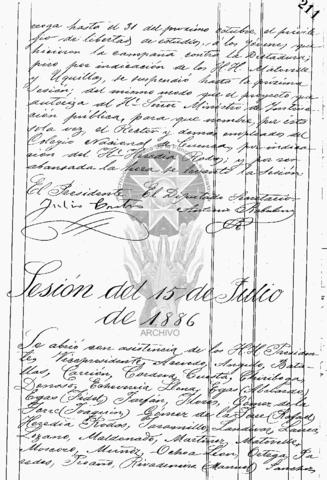 211
roga hasta el 31 del proximo octubre, el privile-
gio de libertad de estudios, a los jóvenes que
hicieron la campaña contra la Dictadura,
pero por indicación de los H.H. Matovelle
y Uquillas, se suspendió hasta la próxima
Sesión; del mismo modo que el proyecto que
autoriza al H. Señor Ministro de Instruc-
ción pública, para que nombre, por esta
sola vez, el Rector y demás empleados del
Colegio Nacional de Cuenca, por indica-
ción del H. Heredia Rodas; y por ser
avanzada la hora se levantó la Sesión.
El Presidente El Diputado Secretario
Julio Castro Antonio
Sesión del 15 de Julio
de 1886
ARCHIVO
Se abrió con asistencia de los H.H. Presiden-
te, Vicepresidente, Acevedo, Angulo, Bata-
llas, Carrión, Cordova, Cuesta, Chiriboga,
Donoso, Echeverria Llona, Egas (Abelardo),
Egas (Fidel), Farfán, Flores, Gómez de la
Torre (Joaquin), Gómez de la Torre (Rafael),
Heredia Rodas, Jaramillo, Landívar,
Lozano, Maldonado, Martinez, Matovelle,
Moscoso, Muñoz, Ochoa Leon, Ortega, Pa-
redes, Proaño, Rivadeneira (Manuel), Sanchez,